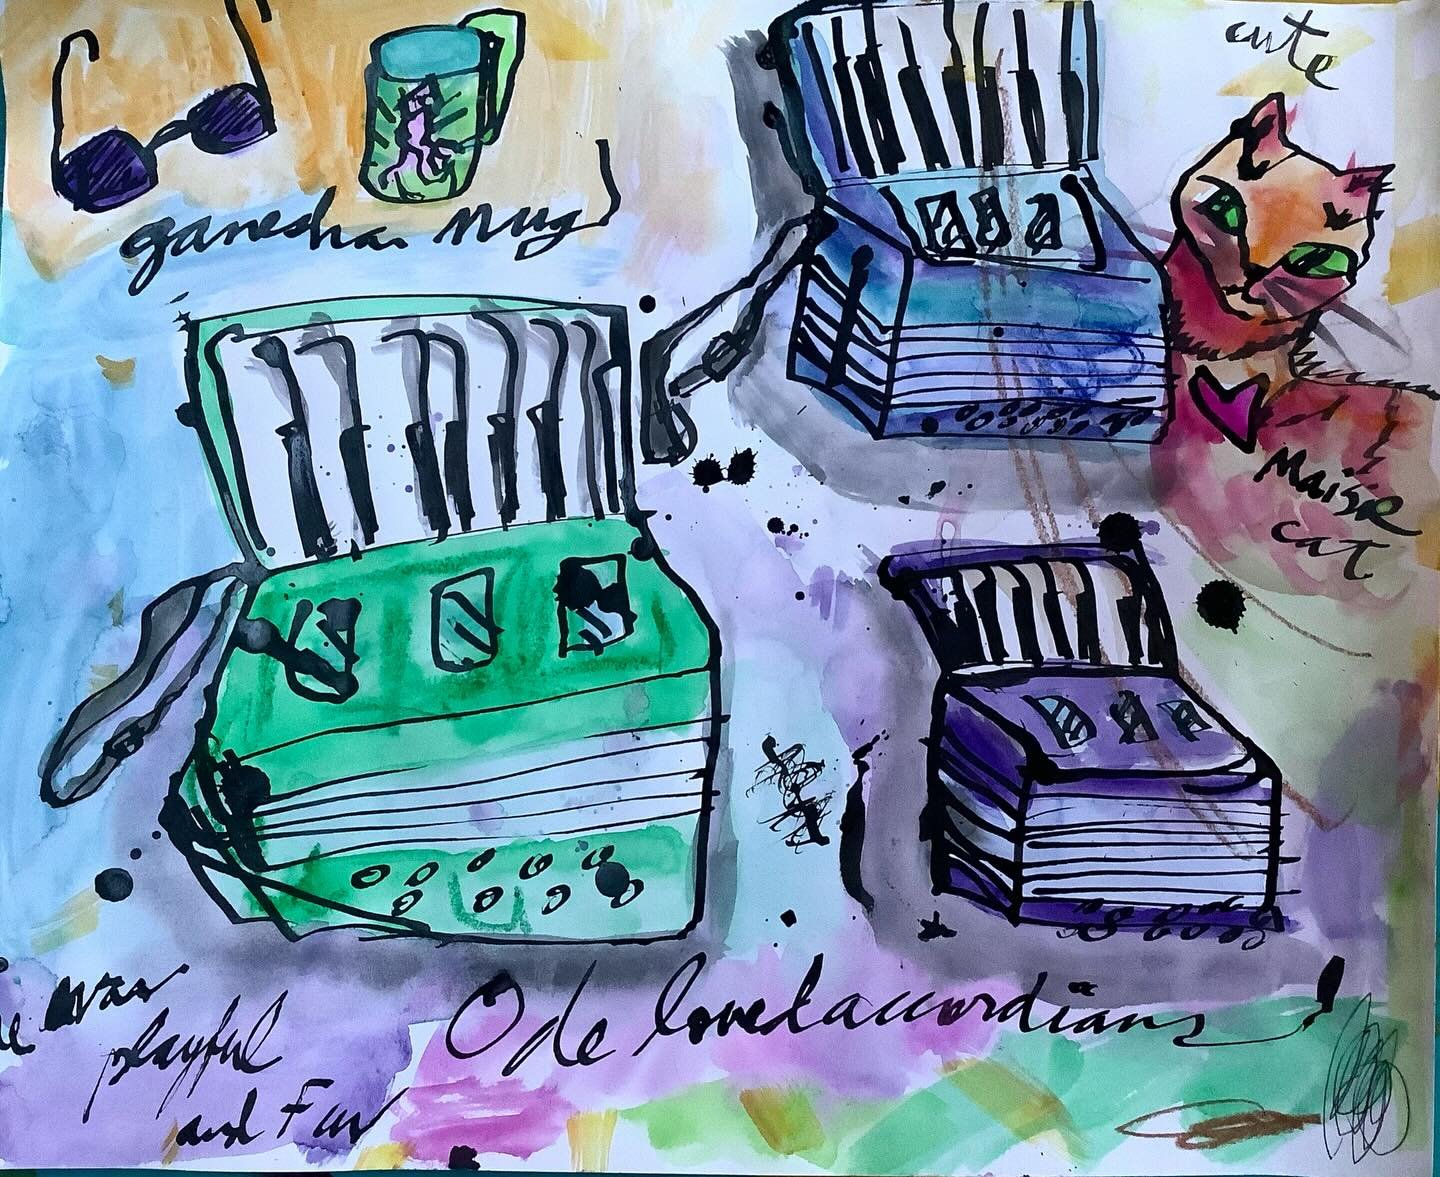 cute
ganesha mug
Maisie
cat
Ode loved accordians!
was
playful
and Fun